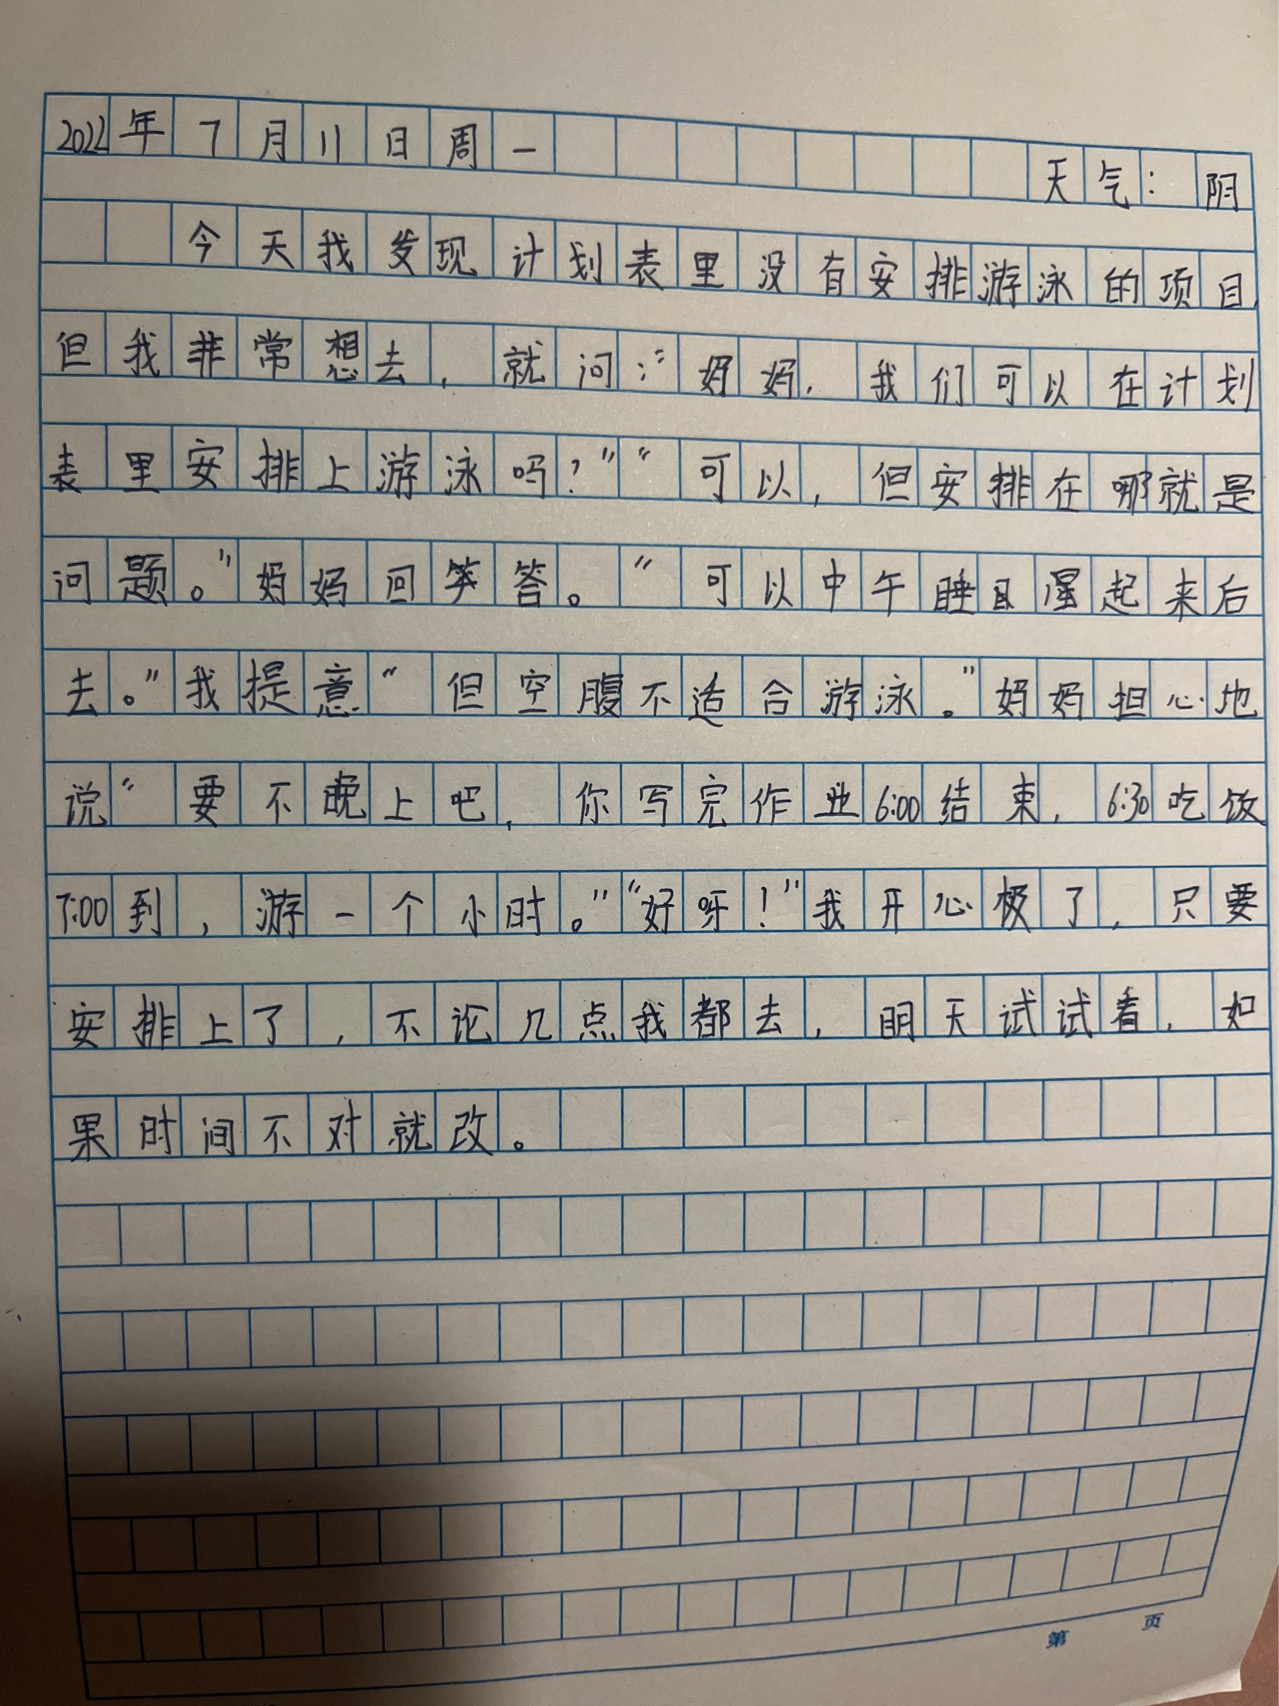 2022年7月11日周一 天气：阴
今天我发现计划表里没有安排游泳的项目,
但我非常想去，就问：“妈妈，我们可以在计划
表里安排上游泳吗？”“可以，但安排在哪就是
问题。”妈妈回笑答。“可以中午睡目星起来后
去。”我提意“但空腹不适合游泳。”妈妈担心地
说“要不晚上吧，你写完作业6:00结束，6:30吃饭
7:00到，游一个小时。”“好呀！”我开心极了，只要
安排上了，不论几点我都去，明天试试看，如
果时间不对就改。
第 页